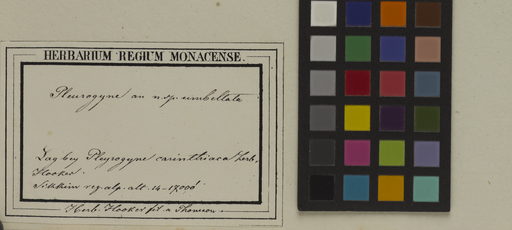 HERBARIUM REGIUM MONACENSE.
Pleurogyne an n. sp. umbellata
Lag bey Pleyrogyne carinthiaca Herb.
Hooker.
Sikkim reg. alp. alt. 14-17,000'
Herb. Hooker fil. & Thomson